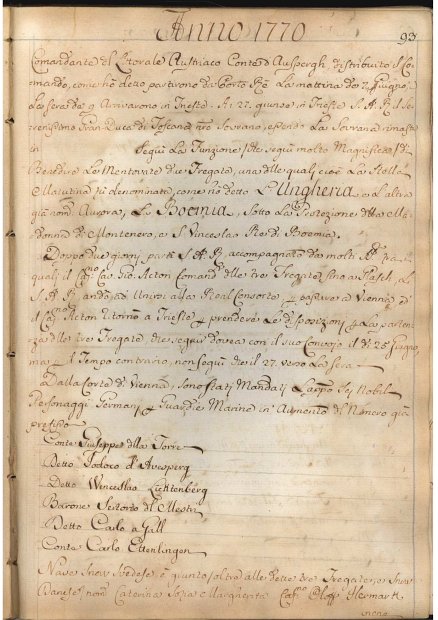 Anno 1770
93
Comandante del Litorale Austriaco Conte d'Auspergh, distribuito il Co
mando, come hò detto partirono di Porto Rè La mattina de 7 Giugno
La sera de 9 Arrivarono in Trieste. A: 27. giunse in Trieste S. A. R. il Se
renissimo Gran Duca di Toscana nro Sovrano, essendo La Sovrana rimasta
in
Seguì La Funzione, che seguì molto Magnifica, di
Benedire Le Mentovate due Fregate, una delle quali cioè La Stella
Matutina fù denominata, come hò detto L'Ungheria, e L'altra
già nom.ta Aurora, La Boemia, Sotto La Protezione della Ma
donna di Montenero, e S. Vinceslao Rè di Boemia.
Doppo due giorni partì S. A. R. accompagnato da molti fra
quali il Cap.no Cav. Gio. Acton Comand.e delle tre Fregate, sino a
S. A. R. andò ad Unirsi alla Real Consorte, e passare a Vienna, ed
il Cav. Acton ritornò a Trieste per prendere Le disposizioni per La parten
za delle tre Fregate, che seguir dovea con il suo Convojo il dì 25 Giugno,
ma per il Tempo contrario, non seguì che il 27. verso La sera
Dalla Corte di Vienna, sono stati Mandati L'app.o Sei Nobili
Personaggi Germani per Guardie Marine in Aumento del Numero già
prefisso
Conte Giuseppe della Torre
Detto Todoco d'Avesperg
Detto Winceslao Lichtenberg
Barone Sertorio del Mestri
Detto Carlo a Gall
Conte Carlo Ettenlingen
Nave Snow Svedese è giunto, oltre alle dette tre Fregate, e Snow
Danese nom.to Caterina Sofia e Margherita Cap.o Oloff Hermark